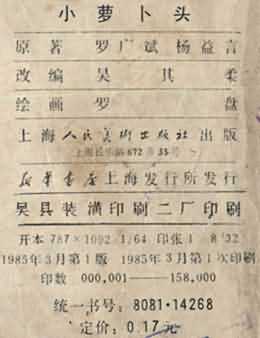 小萝卜头
原著 罗广斌 杨益言
改编 吴其柔
绘画 罗盘
上海人民美术出版社出版
上海长乐路672弄33号
新华书店上海发行所发行
吴县装潢印刷二厂印刷
开本 787×1092 1/64 印张 1 8/32
1985年3月第1版 1985年3月第1次印刷
印数 000,001——158,000
统一书号：8081·14268
定价：0.17元